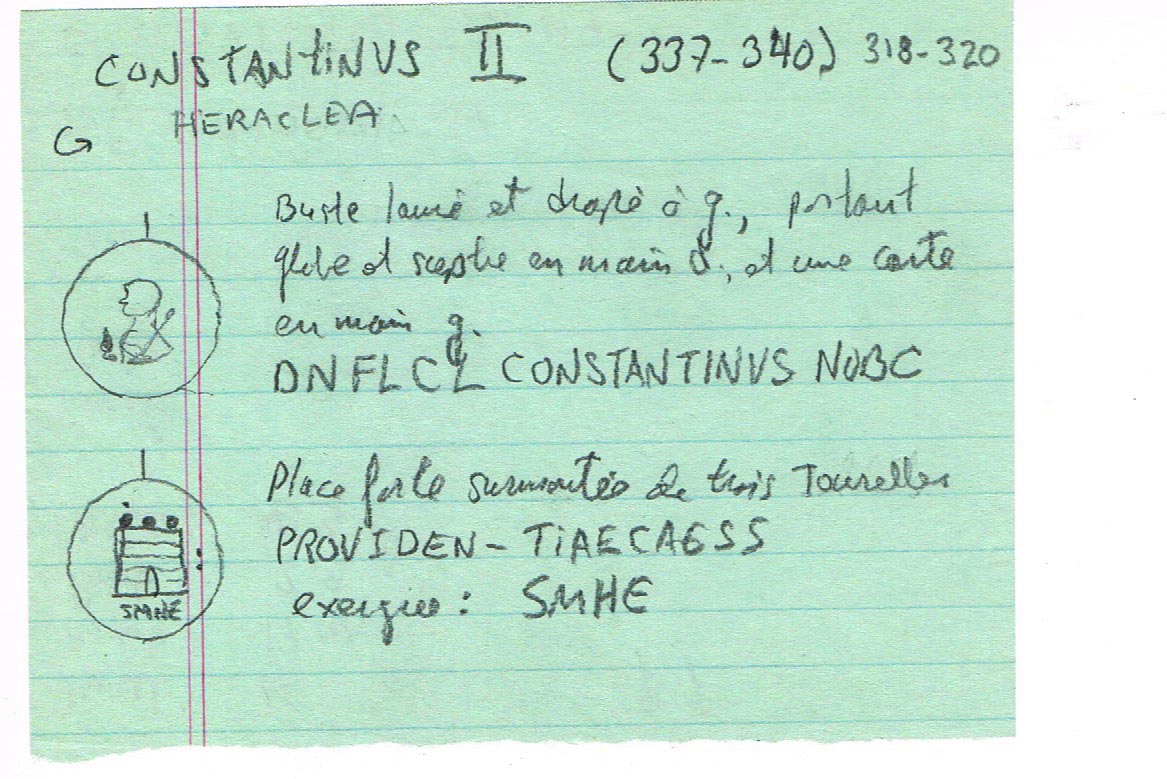 CONSTANTINVS II (337-340) 318-320
HERACLEA
Buste lauré et drapé à g., portant
globe et sceptre en main d., et une carte
en main g.
DNFLCL CONSTANTINVS NOBC
Place forte surmontée de trois Tourelles
PROVIDEN-TiAECAESS
SMHE
exergue: SMHE